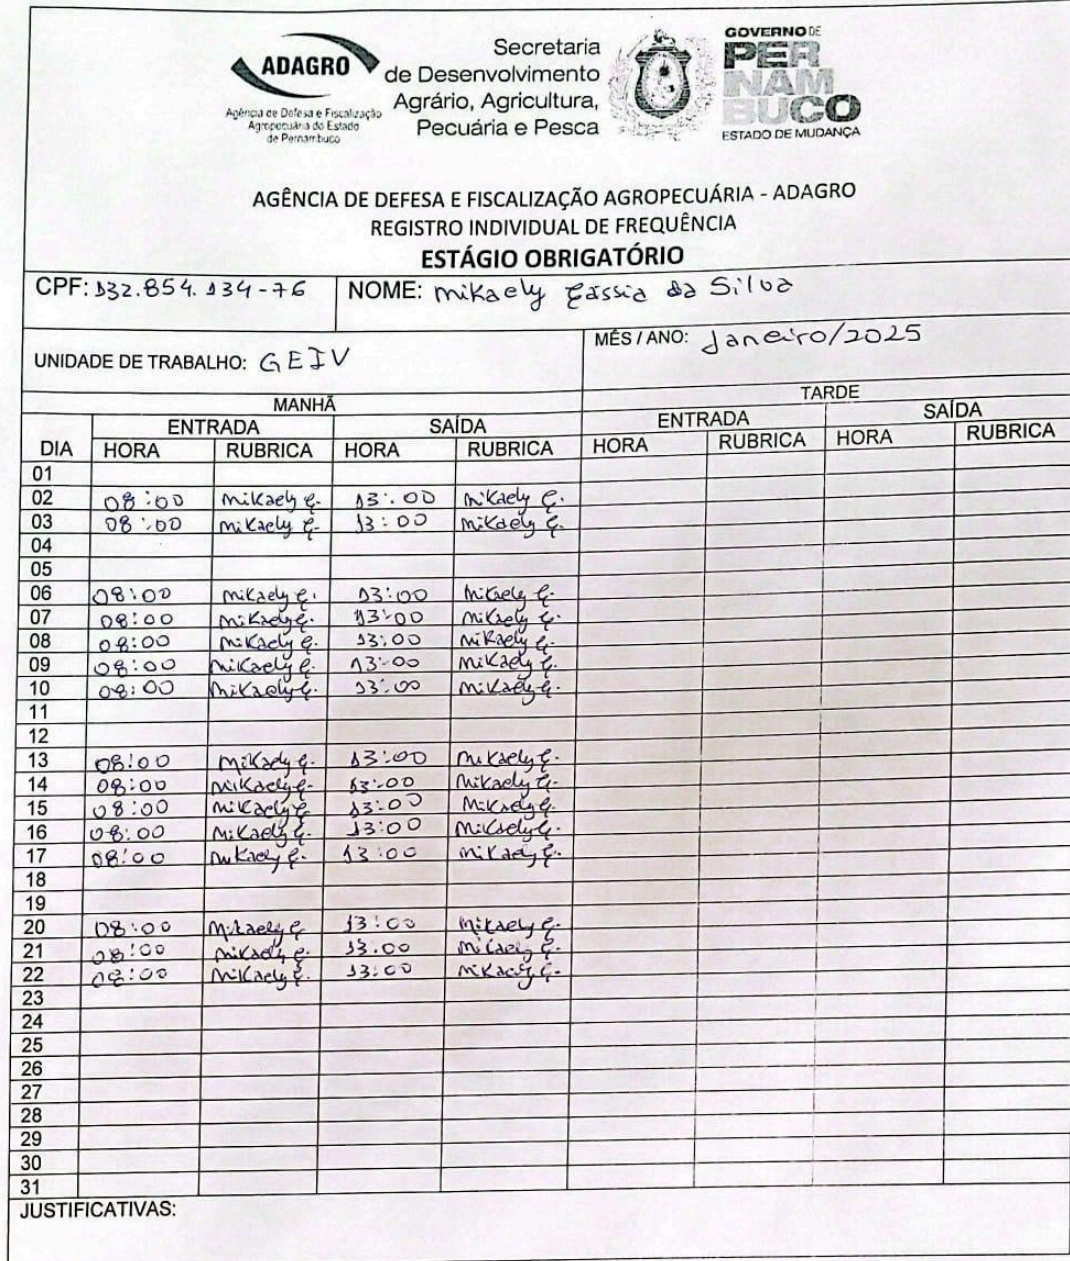 ADAGRO
Agência de Defesa e Fiscalização
Agropecuária do Estado
de Pernambuco
Secretaria
de Desenvolvimento
Agrário, Agricultura,
Pecuária e Pesca
GOVERNO DE
PER
NAM
BUCO
ESTADO DE MUDANÇA
AGÊNCIA DE DEFESA E FISCALIZAÇÃO AGROPECUÁRIA - ADAGRO
REGISTRO INDIVIDUAL DE FREQUÊNCIA
ESTÁGIO OBRIGATÓRIO
CPF: 132.854.134-76 NOME: Mikaely Cássia da Silva
UNIDADE DE TRABALHO: GEIV MÊS / ANO: Janeiro/2025
MANHÃ TARDE
ENTRADA SAÍDA ENTRADA SAÍDA
DIA HORA RUBRICA HORA RUBRICA HORA RUBRICA HORA RUBRICA
01
02 08:00 Mikaely C. 13:00 Mikaely C.
03 08:00 Mikaely C. 13:00 Mikaely C.
04
05
06 08:00 Mikaely C. 13:00 Mikaely C.
07 08:00 Mikaely C. 13:00 Mikaely C.
08 08:00 Mikaely C. 13:00 Mikaely C.
09 08:00 Mikaely C. 13:00 Mikaely C.
10 08:00 Mikaely C. 13:00 Mikaely C.
11
12
13 08:00 Mikaely C. 13:00 Mikaely C.
14 08:00 Mikaely C. 13:00 Mikaely C.
15 08:00 Mikaely C. 13:00 Mikaely C.
16 08:00 Mikaely C. 13:00 Mikaely C.
17 08:00 Mikaely C. 13:00 Mikaely C.
18
19
20 08:00 Mikaely C. 13:00 Mikaely C.
21 08:00 Mikaely C. 13:00 Mikaely C.
22 08:00 Mikaely C. 13:00 Mikaely C.
23
24
25
26
27
28
29
30
31
JUSTIFICATIVAS: